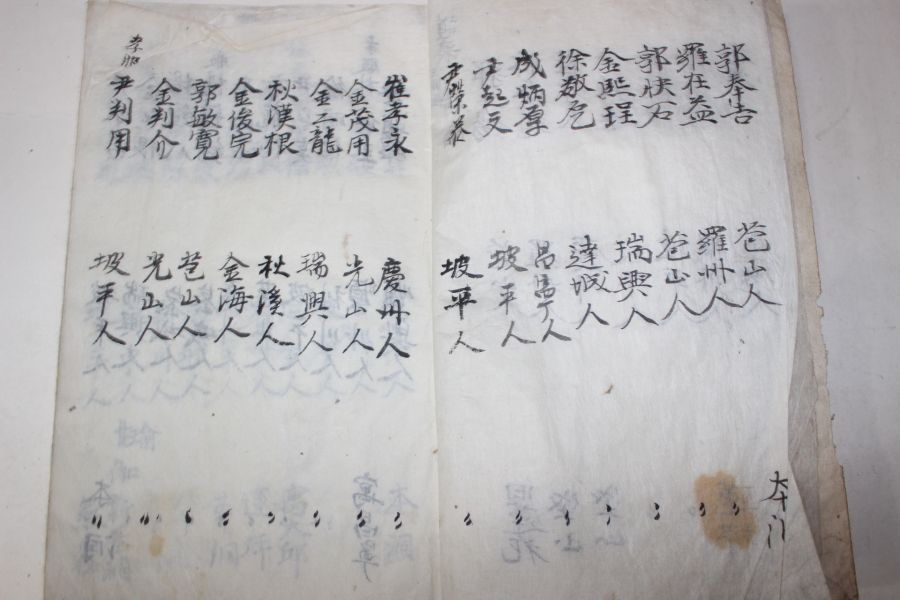 郭奉吉 苞山人 本門
羅在益 羅州人 〃
郭快石 苞山人 〃
金熙珵 瑞興人 〃
徐敬 達城人 〃
成炳厚 昌寧人 〃
尹起文 坡平人 〃
尹榮 坡平人 〃
崔孝永 慶州人 〃
金茂用 光山人 〃
金二龍 瑞興人 〃
秋漢根 秋溪人 〃
金俊完 金海人 〃
郭敏寬 苞山人 〃
金判介 光山人 〃
尹判用 坡平人 〃